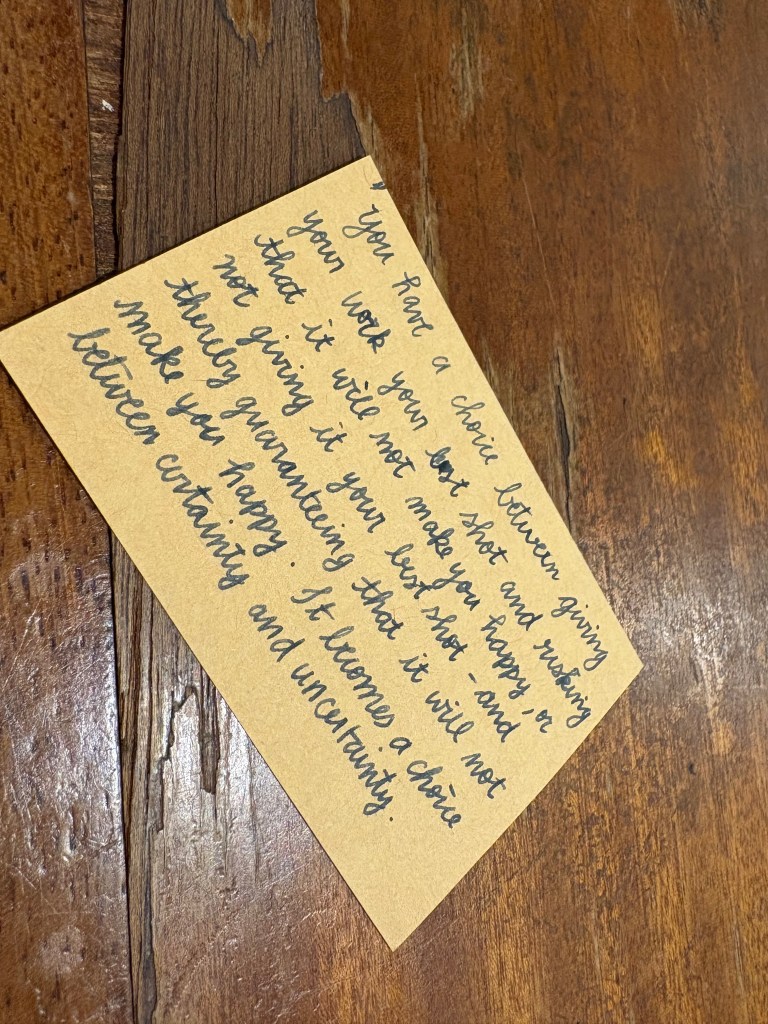 You have a choice between giving
your work your best shot and risking
that it will not make you happy, or
not giving it your best shot - and
thereby guaranteeing that it will not
make you happy. It becomes a choice
between certainty and uncertainty.